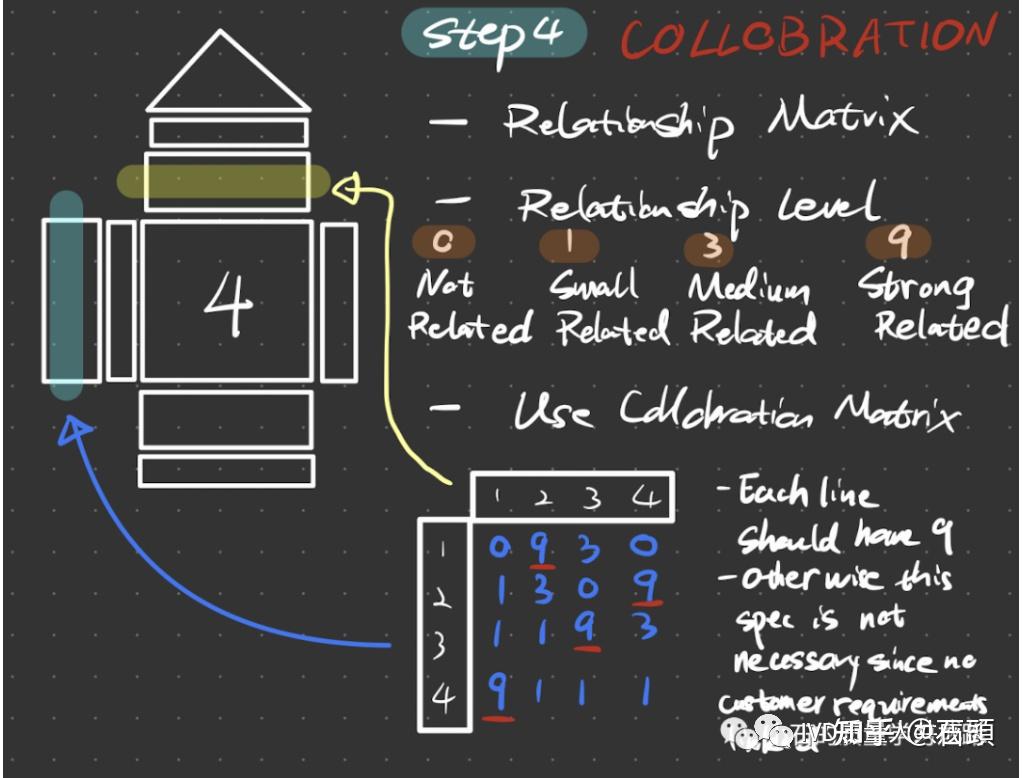 Step 4 COLLOBRATION
— Relationship Matrix
— Relationship Level
0 1 3 9
Not Small Medium Strong
Related Related Related Related
4
— Use Collobration Matrix
1 2 3 4
1 0 9 3 0
2 1 3 0 9
3 1 1 9 3
4 9 1 1 1
- Each line
should have 9
- Otherwise this
spec is not
necessary since no
customer requirements
知乎 @石頭